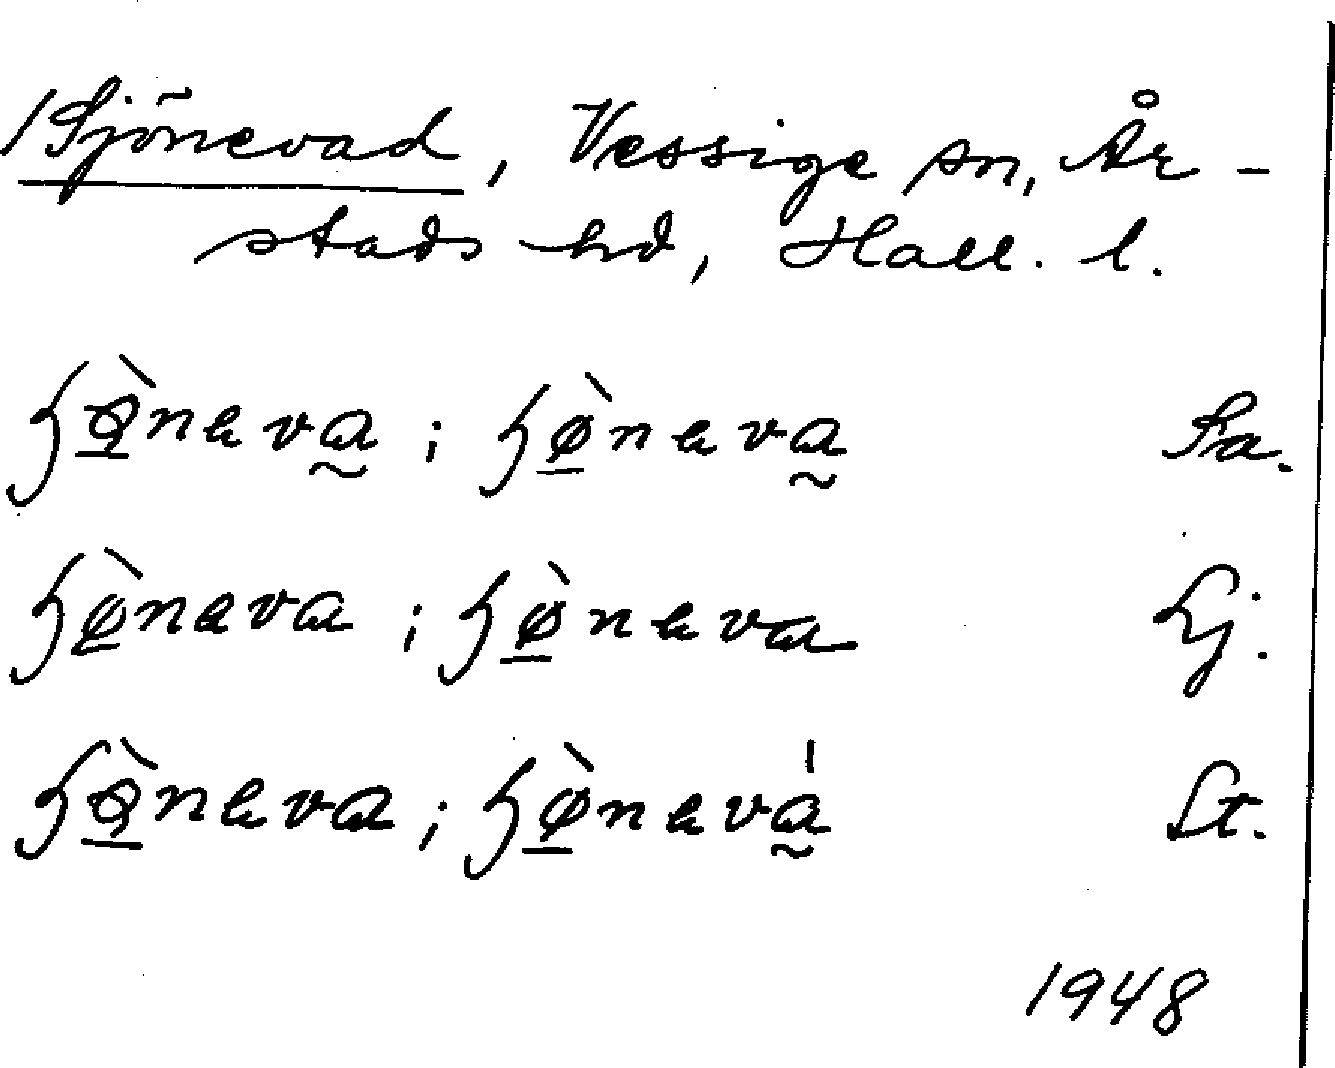 1 Sjönevad, Vessige sn, År-
stads hd, Hall. l.
ɧø̠̀neva̰ ; ɧø̠̀neva̰ Sa.
ɧø̠̀neva ; ɧø̠̀neva Lj.
ɧø̠̀neva ; ɧø̠̀nevá̰ St.
1948